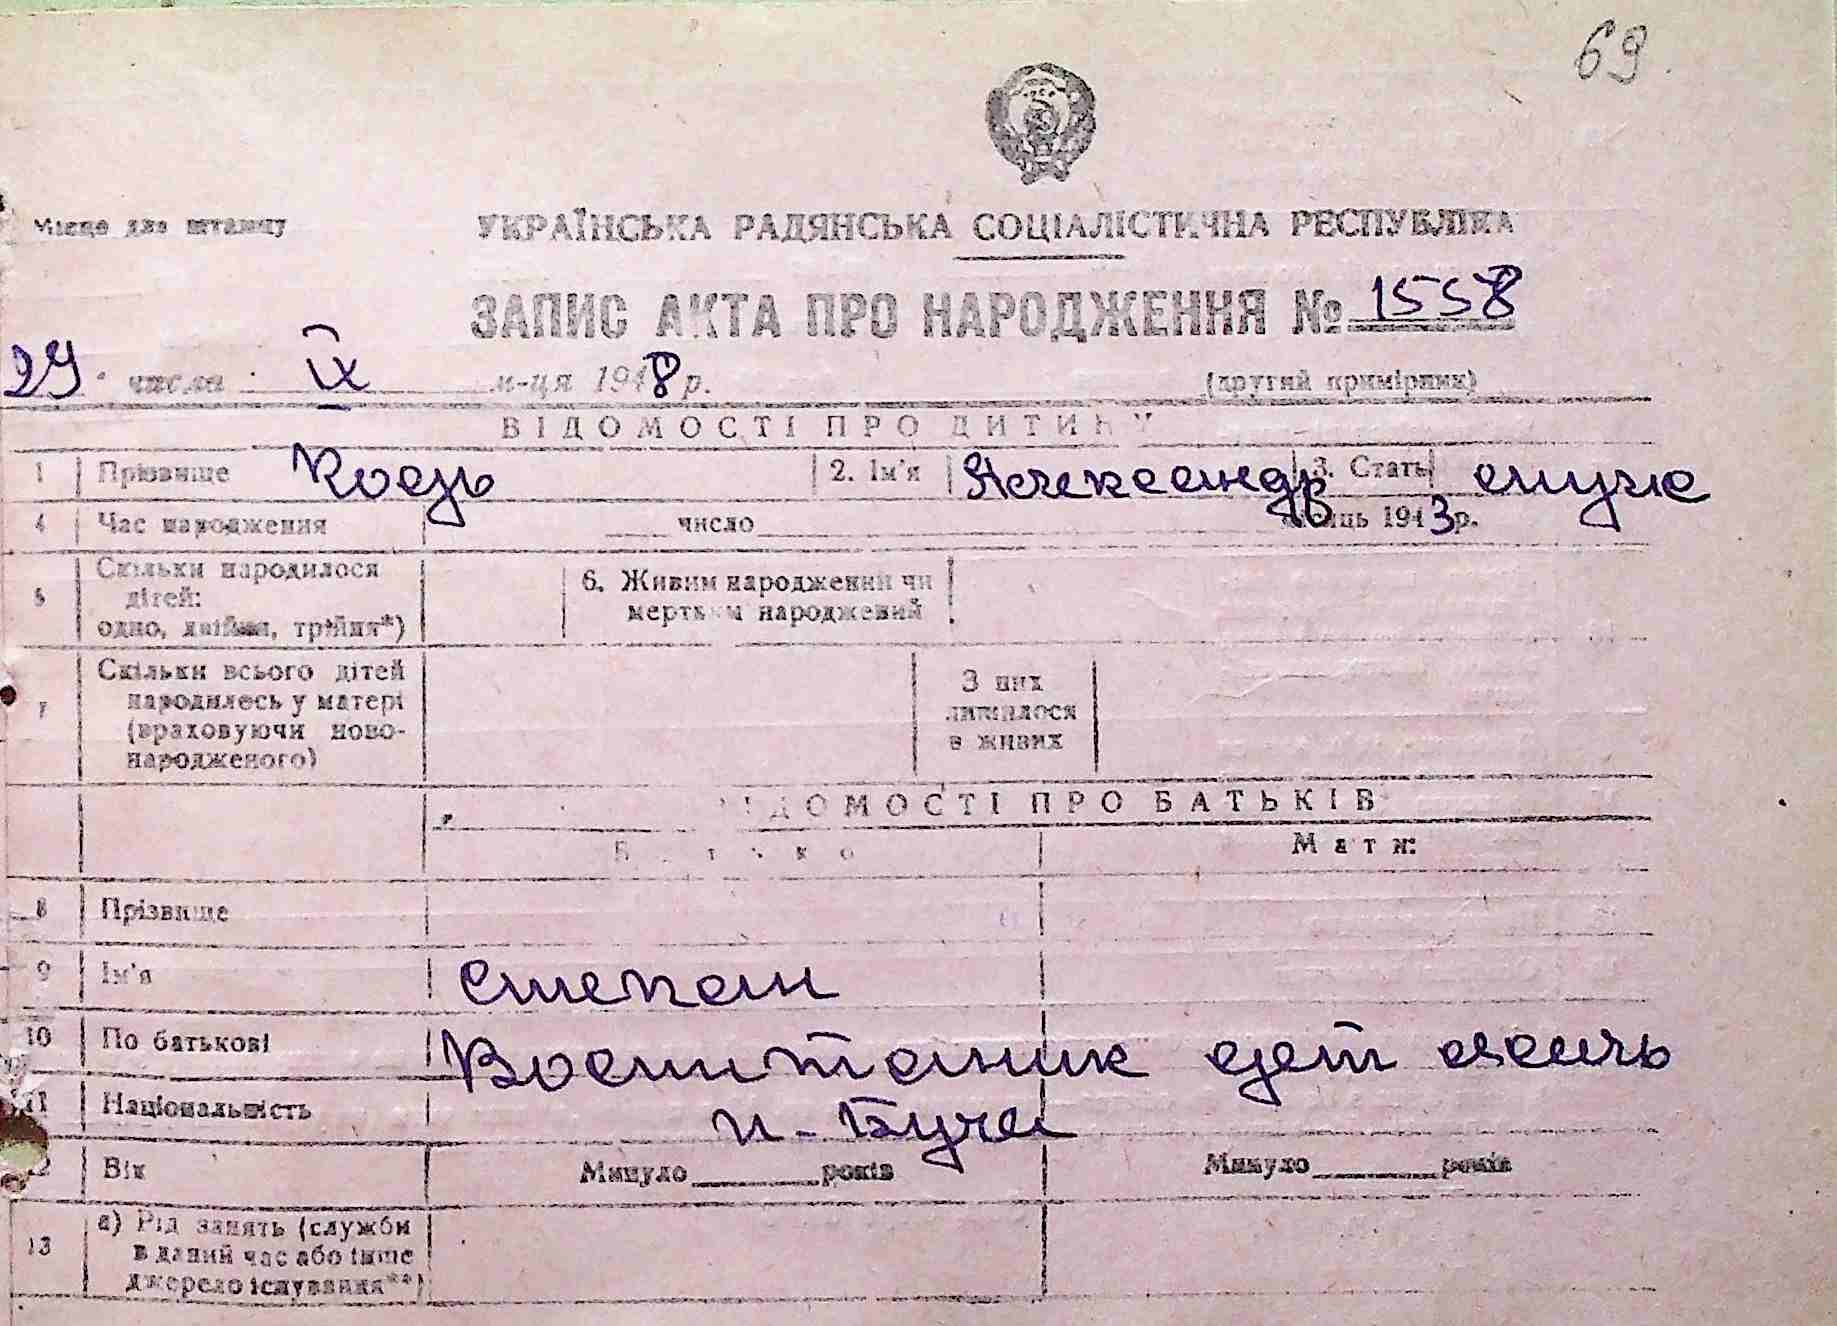 69
Місце для штампу
УКРАЇНСЬКА РАДЯНСЬКА СОЦІАЛІСТИЧНА РЕСПУБЛІКА
ЗАПИС АКТА ПРО НАРОДЖЕННЯ № 1558
29 числа IX м-ця 1948 р. (другий примірник)
ВІДОМОСТІ ПРО ДИТИНУ
1 Прізвище 2. Ім'я Александр 3. Стать муж
4 Час народження число місяць 1943 р.
5 Скільки народилося дітей: одно, двійня, трійня*) 6. Живим народжений чи мертвим народжений
7 Скільки всього дітей народилось у матері (враховуючи ново-народженого) З них лишилося в живих
ВІДОМОСТІ ПРО БАТЬКІВ
Батько Мати:
8 Прізвище
9 Ім'я Степан
10 По батькові Воспитаник дет
11 Національність п-Буча
12 Вік Минуло років Минуло років
13 а) Рід занять (служби в даний час або інше джерело існування**)